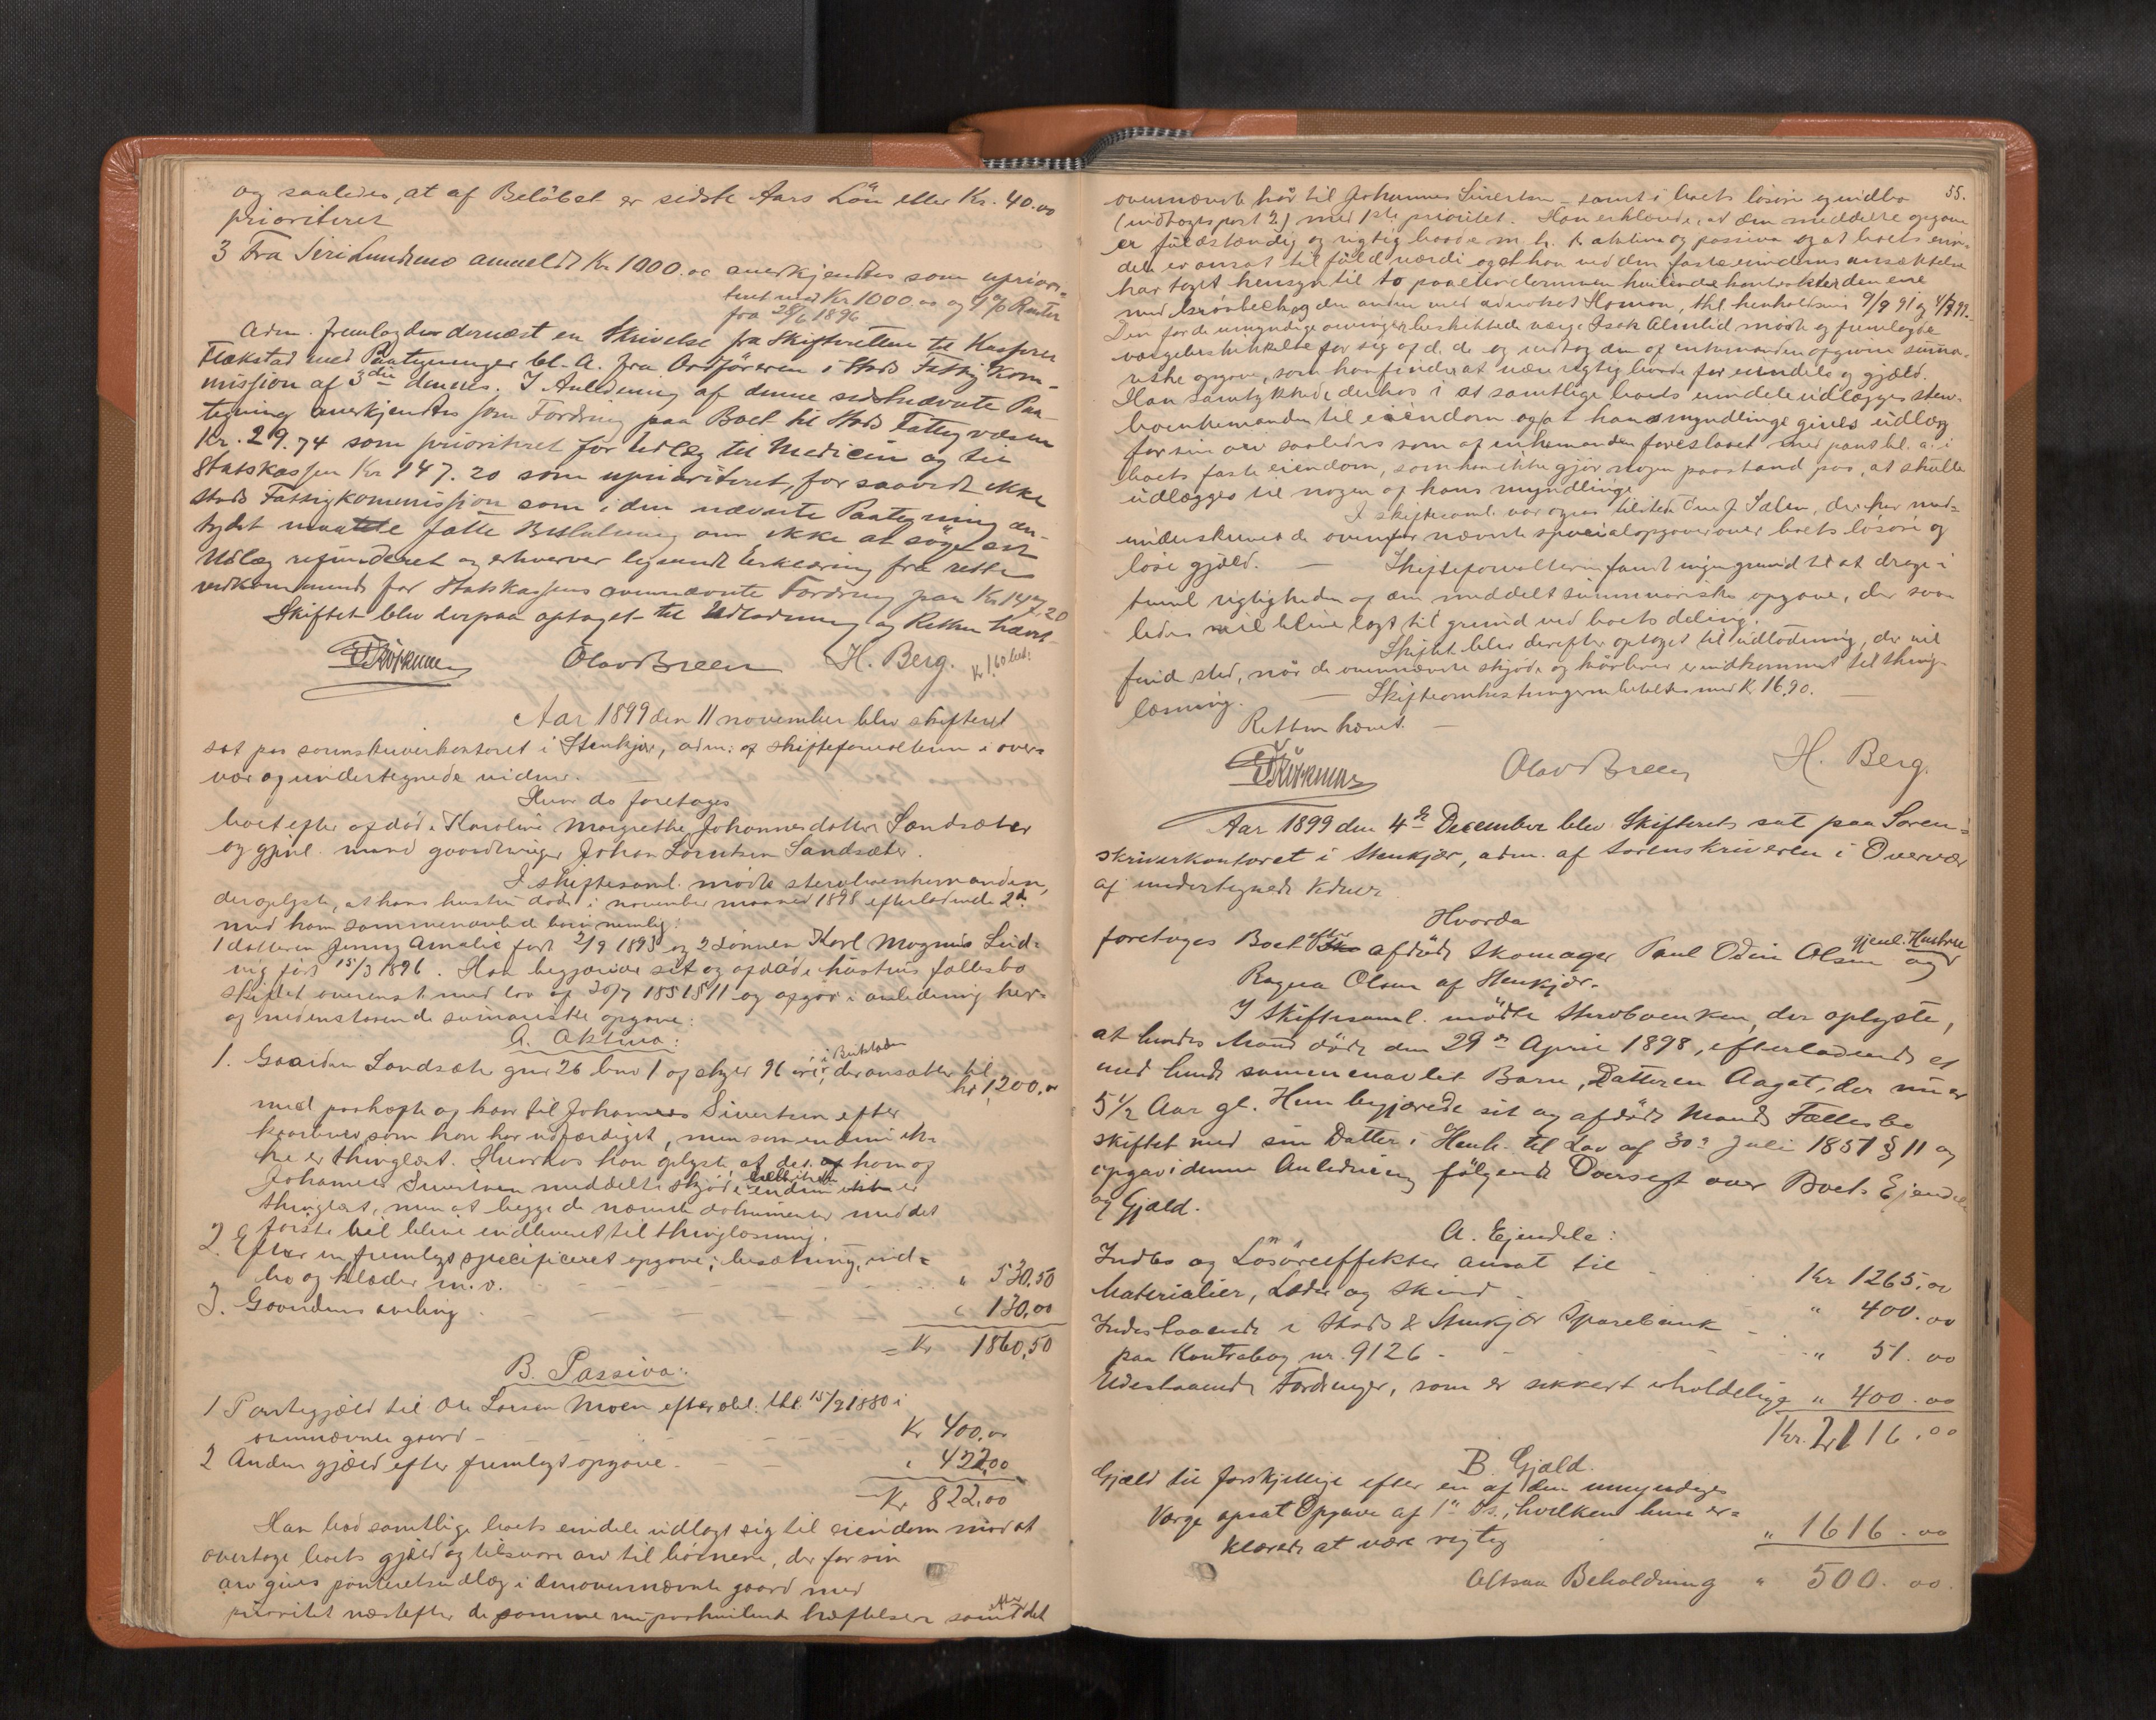 og saaledes, at af Beløbet er sidste Aars Løn eller Kr. 40.00
prioriteret
3 Fra Siri Lundsmo anmeldt Kr 1000.00 anerkjendtes som uprior-
teret med Kr 1000.00 og 4% Renter
fra 28/6 1896
Adm. fremlagde dernæst en Skrivelse fra Skifteretten til Kasserer
Flækstad med Paategninger bl. A. fra Ordføreren i Stods Fattigkom-
mission af 3die dennes. I Anledning af denne sidstnævnte Paa-
tegning anerkjendtes som Fordring paa Boet til Stods Fattigvæsen
Kr. 29.74 som prioriteret for Udlæg til Medicin og til
Statskassen Kr 147.20 som uprioriteret, forsaavidt ikke
Stods Fattigkommission som i den nævnte Paategning an-
tydet maatte fatte Beslutning om ikke at søge sit
Udlæg refunderet og erhverver lignende Erklæring fra rette
vedkommende for Statskassens ovennævnte Fordring paa Kr 147.20
Skiftet blev derpaa optaget til Udlodning og Retten hævet.
Olav Breen H. Berg. Kr 1,60 bet:
Aar 1899 den 11 november blev skifteret
sat paa sorenskriverkontoret i Stenkjær, adm: af skifteforvalteren i over-
vær af undertegnede vidner.
Hvor da foretages
boet efter afdøde Karoline Margrethe Johannesdatter Sandsæter
og gjenl. mand gaardbruger Johan Lorntsen Sandsæter.
I skiftesaml. mødte sterboenkemanden,
der oplyste, at hans hustru døde i november maaned 1898 efterladende 2de
med ham sammenavlede børn nemlig:
1 datteren Jenny Amalie født 2/9 1893 og 2 sønnen Karl Magnus Lud-
vig født 15/3 1896. Han begjærede sit og afdøde hustrus fællesbo
skiftet overenst. med lov af 30/7 1851 § 11 og opgav i anledning her-
af nedenstaaende summariske opgave:
A. Aktiva:
1. Gaarden Sandsæter gnr 26 bnr 1 af skyld 96 øre, i Beitstaden der ansattes til
kr 1,200.00
med paahefte og kaar til Johannes Sivertsen efter
kaarbrev, som han har udfærdiget, men som endnu ik-
ke er thinglæst. Hvorhos han oplyste, at det af ham og
Johannes Sivertsen meddelte skjøde endnu ikke er
thinglæst, men at begge de nævnte dokumenter med det
første vil blive indleveret til thinglæsning.
2. Efter en fremlagt specificeret opgave; besætning, ind-
bo og klæder m.v. - - " 530,50
3. Gaardens avling - - " 130,00
= Kr 1860,50
B. Passiva:
1 Pantegjæld til Ole Larsen Moen efter obl. thl. 15/2 1880 i
ovennævnte gaard - - Kr 400,00
2 Anden gjæld efter fremlagt opgave - - " 422,00
Kr 822,00
Han bad samtlige boets eiendele udlagt sig til eiendom mod at
overtage boets gjæld og tilsvare arv til børnene, der for sin
arv gives panteretsudlæg i den ovennævnte gaard med
prioritet næstefter de samme nu paahvilende hæftelser samt det
55.
ovennævnte kår til Johannes Sivertsen - samt i boets løsøre og indbo
(indtægtspost 2) med 1ste prioritet. Han erklærede, at den meddelte opgave
er fuldstændig og rigtig baade m. h. t. aktiva og passiva og at boets eien-
dele er ansat til fuld værdi og at han ved den faste eiendoms ansættelse
har taget hensyn til to paa eiendommen hvilende kontrakter den ene
med og den anden med advokat Homan, thl. henholdsvis 9/9 91 og 4/9 99.
Den for de umyndige arvinger beskikkede værge Isak Almlid mødte og fremlagde
værgebeskikkelse for sig af d. d. og vedtog den af enkemanden opgivne summa-
riske opgave, som han finder at være rigtig baade for eiendele og gjæld.
Han samtykkede derhos i at samtlige boets eiendele udlægges sterv-
boenkemanden til eiendom og at hans myndlinge gives udlæg
for sin arv saaledes som af enkemanden foreslaaet med pant bl. a. i
boets faste eiendom, som han ikke gjør nogen paastand paa, at skulle
udlægges til nogen af hans myndlinge.
I skiftesaml. var ogsaa tilstede Ole J. Sælen, der har med-
underskrevet de ovenfor nævnte specialopgaver over boets løsøre og
løse gjæld. - Skifteforvalteren fandt ingen grund til at drage i
tvivl rigtigheden af den meddelte summariske opgave, der saa-
ledes vil blive lagt til grund ved boets deling.
Skiftet blev derefter optaget til udlodning, der vil
finde sted, når de ovennævnte skjøde og kårbrev er indkommet til thing-
læsning. - Skifteomkostningerne betaltes med Kr. 16.90. -
Retten hævet. -
Olav Breen H. Berg.
Aar 1899 den 4de December blev Skifteret sat paa Soren-
skriverkontoret i Stenkjær, adm. af Sorenskriveren i Overvær
af undertegnede Vidner
Hvorda
foretages Boet efter afdøde Skomager Paul Odin Olsen og gjenl. Hustru
Ragna Olsen af Stenkjær.
I Skiftesaml. mødte Stervboenken, der oplyste,
at hendes Mand døde den 29de April 1898, efterladende et
med hende sammenavlet Barn, Datteren Aagot, der nu er
5 1/2 Aar gl. Hun begjærede sit og afdøde Mands Fællesbo
skiftet med sin Datter i Henh. til Lov af 30te Juli 1851 § 11 og
opgav i denne Anledning følgende Oversigt over Boets Ejendele
og Gjæld.
A. Ejendele:
Indbo og Løsøreeffekter ansat til - Kr 1265,00
Materialier, Læder og Skind - " 400.00
Indestaaende i Stods & Stenkjær Sparebank -
paa Kontrabog nr. 9126 - - " 51.00
Udestaaende Fordringer, som er sikkert erholdelige " 400.00
Kr. 2116.00
B. Gjæld.
Gjæld til forskjellige efter en af den umyndiges
Værge opsat Opgave af 1ste ds., hvilken hun er-
klærede at være rigtig " 1616.00
Altsaa Beholdning " 500.00.